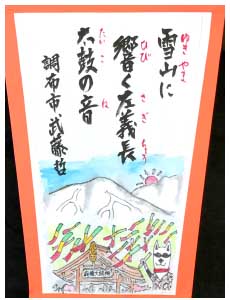 雪山に
ゆきやま
響く左義長
ひびさぎちょう
太鼓の音
たいこね
調布市 武藤哲